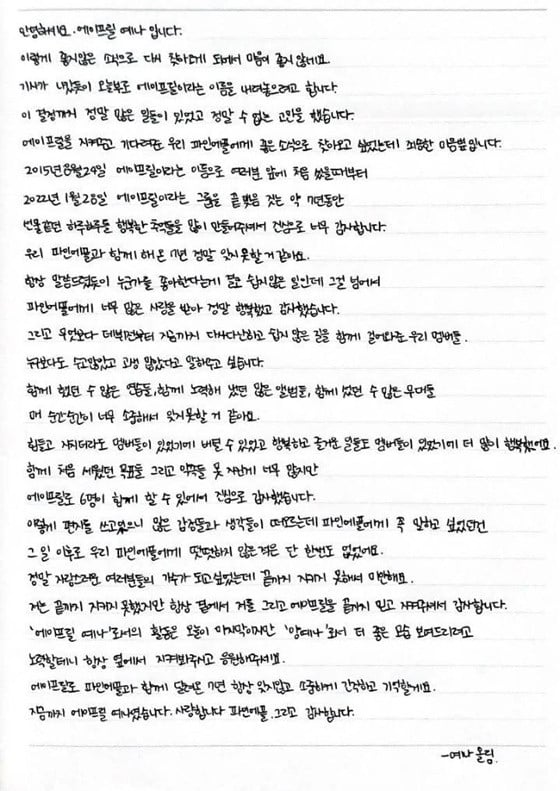 안녕하세요. 에이프릴 예나 입니다.
이렇게 좋지않은 소식으로 다시 찾아오게 되어서 마음이 좋지 않네요.
기사가 나갔듯이 오늘부로 에이프릴이라는 이름을 내려놓으려고 합니다.
이 결정까지 정말 많은 일들이 있었고 정말 수 없는 고민을 했습니다.
에이프릴을 지켜주고 기다려준 우리 파인에플에게 좋은 소식으로 찾아오고 싶었는데 죄송한 마음뿐입니다.
2015년 8월 24일 에이프릴이라는 이름으로 여러분 앞에 처음 섰을때부터
2022년 1월 28일 에이프릴이라는 그룹을 끝맺음 짓는 약 7년동안
선물같은 하루하루들 행복한 추억들을 많이 만들어주셔서 진심으로 너무 감사합니다.
우리 파인에플과 함께 해온 7년 정말 잊지 못할거 같아요.
항상 말씀드렸듯이 누군가를 좋아한다는게 참 쉽지않은 일인데 그걸 넘어서
파인에플에게 너무 많은 사랑을 받아 정말 행복했고 감사했습니다.
그리고 무엇보다 데뷔전부터 지금까지 다사다난하고 쉽지 않은 길을 함께 걸어와준 우리 멤버들.
누구보다도 수고많았고 고생 많았다고 말하고 싶습니다.
함께 했던 수 많은 연습들, 함께 노력해 냈던 많은 앨범들, 함께 섰던 수 많은 무대들
매 순간순간이 너무 소중해서 잊지못할 거 같아요.
힘들고 지치더라도 멤버들이 있었기에 버틸 수 있었고 행복하고 즐거운 일들도 멤버들이 있었기에 더 많이 행복했어요.
함께 처음 세웠던 목표들 그리고 약속들 못 지킨게 너무 많지만
에이프릴로 6명이 함께 할 수 있어서 진심으로 감사했습니다.
이렇게 편지를 쓰고있으니 많은 감정들과 생각들이 떠오르는데 파인에플에게 꼭 말하고 싶었던건
그 일 이후로 우리 파인에플에게 떳떳하지 않은적은 단 한번도 없었어요.
정말 자랑스러운 여러분들의 가수가 되고싶었는데 끝까지 지키지 못해서 미안해요.
저는 끝까지 지키지 못했지만 항상 곁에서 저를 그리고 에이프릴을 끝까지 믿고 지켜주셔서 감사합니다.
'에이프릴 예나'로서의 활동은 오늘이 마지막이지만 '양예나'로서 더 좋은 모습 보여드리려고
노력할테니 항상 옆에서 지켜봐주시고 응원해주세요.
에이프릴로 파인에플과 함께 달려온 7년 항상 잊지않고 소중하게 간직하고 기억할게요.
지금까지 에이프릴 예나였습니다. 사랑합니다 파인에플. 그리고 감사합니다.
-예나 올림.